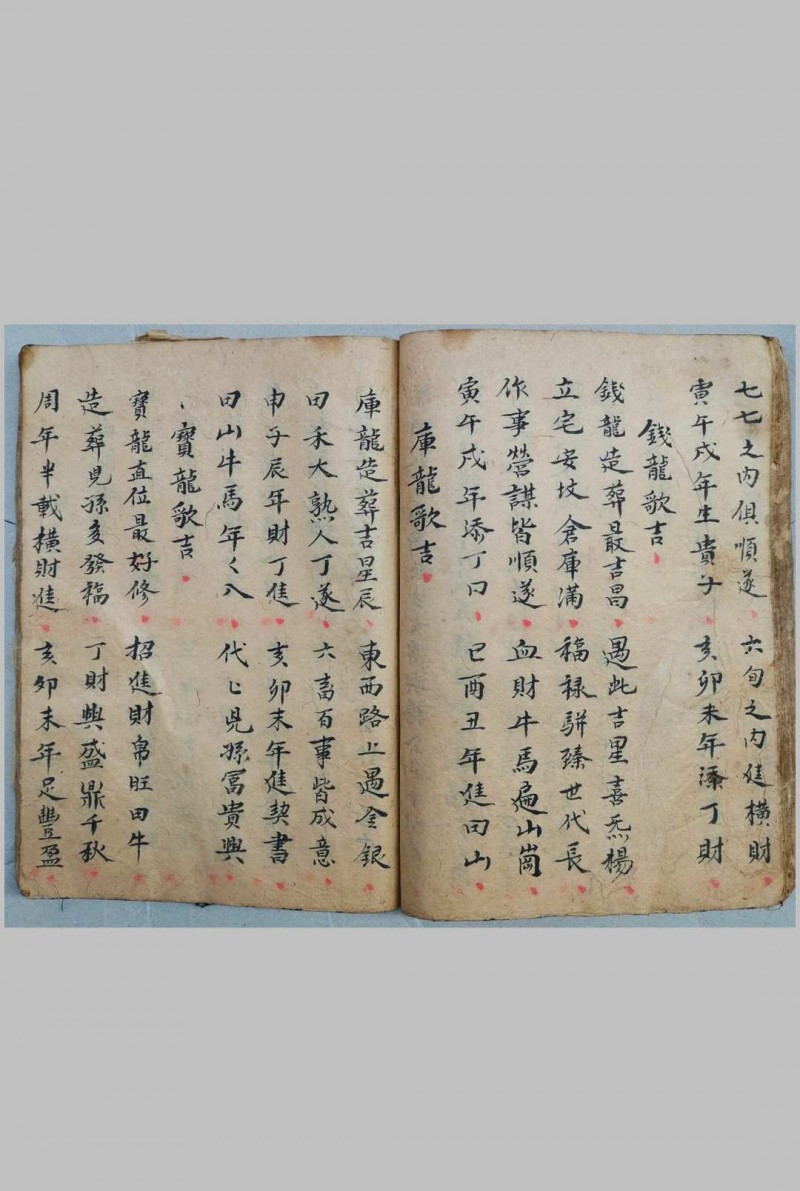 七七之内俱順遂 六旬之内進橫財
寅午戌年生貴子 亥卯未年添丁財
錢龍歌吉
錢龍造葬最吉昌 遇此吉星喜炁楊
立宅安坟倉庫滿 福禄駢臻世代長
作事營謀皆順遂 血財牛馬遍山崗
寅午戌年添丁口 巳酉丑年進田山
庫龍歌吉
庫龍造葬吉星辰 東西路上遇金銀
田禾大熟人丁遂 六畜百事皆成意
申子辰年財丁進 亥卯未年進契書
田山牛馬年々入 代〻児孫冨貴興
寳龍歌吉
寳龍直位最好修 招進財帛旺田牛
造葬児孫多發福 丁財興盛鼎千秋
周年半載橫財進 亥卯未年足豐盈